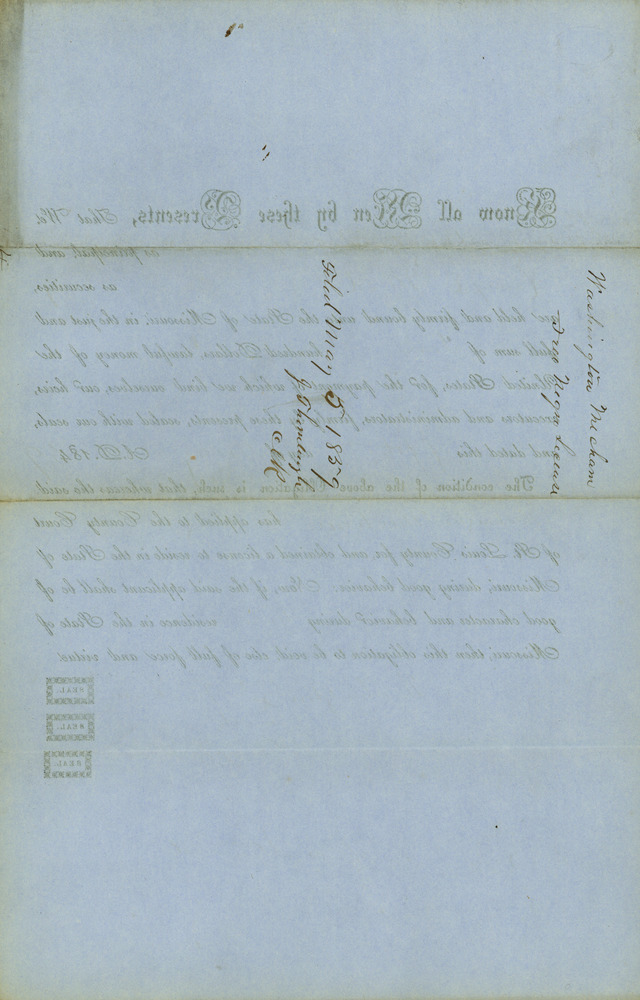 Washington Mecham
Free Negro License
Filed May 5 1859
Know all Men by these Presents, That We
as principal, and
as securities,
held and firmly bound unto the State of Missouri, in the just and
full sum of hundred Dollars, lawful money of the
United States, for the payment of which we bind ourselves, our heirs,
executors and administrators, firmly by these presents, sealed with our seals,
and dated this A. D. 184
The condition of the above Obligation is such, that whereas the said
has applied to the County Court
of St. Louis County for and obtained a license to reside in the State of
Missouri, during good behavior. Now, if the said applicant shall be of
good character and behavior during residence in the State of
Missouri, then this obligation to be void; else of full force and virtue.
SEAL.
SEAL.
SEAL.